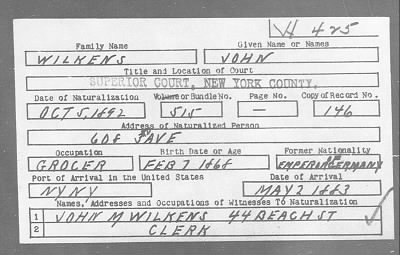 W 425
Family Name Given Name or Names
WILKENS JOHN
Title and Location of Court
SUPERIOR COURT, NEW YORK COUNTY.
Date of Naturalization Volume or Bundle No. Page No. Copy of Record No.
OCT 5, 1892 515 — 146
Address of Naturalized Person
608 5 AVE
Occupation Birth Date or Age Former Nationality
GROCER FEB 7 1868 EMPEROR GERMANY
Port of Arrival in the United States Date of Arrival
NY NY MAY 2 1883
Names, Addresses and Occupations of Witnesses To Naturalization
1 JOHN M WILKENS 44 BEACH ST
2 CLERK